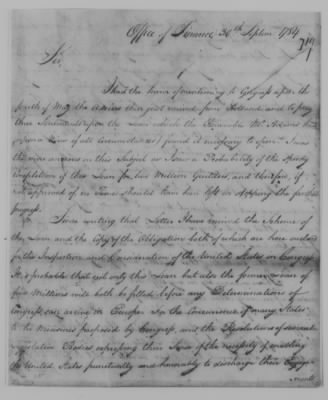 Office of Finance, 30th Septem. 1784
Sir,
I had the honor of mentioning to Congress upon the
fourth of May the Advices then just received from Holland and to pray
their Sentiments upon the Loan which the Honorable Mr. Adams had
(from a View of all Circumstances) found it necessary to open. I was
the more anxious on this Subject as I saw a Probability of the speedy
Completion of this Loan for two Million Guilders, and therefore, if
disapproved of no Time should have been lost in stopping the farther
progress.
Since writing that Letter I have received the Scheme of
the Loan and the Copy of the Obligation both of which are here enclosed
for the Inspection and Consideration of the United States in Congress.
It is probable that not only this Loan but also the former one of
five Millions will both be filled before any Determinations of
Congress can arrive in Europe for the Concurrence of many States
to the Measures proposed by Congress, and the Resolutions of several
Legislative Bodies expressing their Sense of the necessity of enabling
the United States punctually and honorably to discharge their Engage-
ments